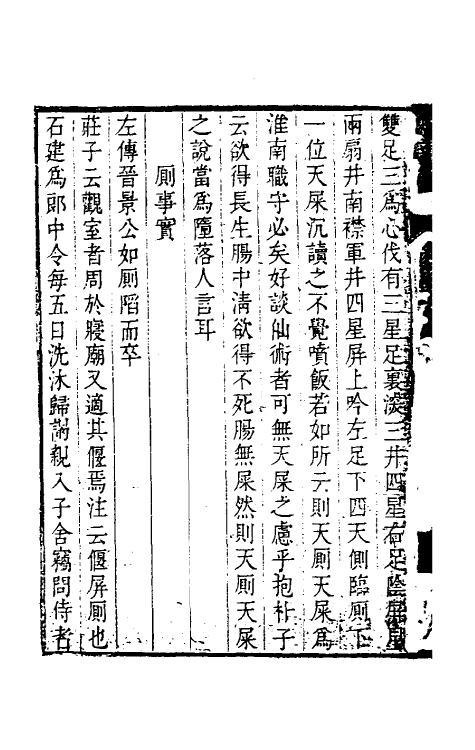 雙足三爲心伐有三星足裏深三井四星右足陰屏星
兩扇井南襟軍井四星屏上吟左足下四天側臨厠下
一位天屎沉讀之不覺噴飯若如所云則天厠天屎爲
淮南職守必矣好談仙術者可無天屎之慮乎抱朴子
云欲得長生腸中淸欲得不死腸無屎然則天厠天屎
之說當爲墮落人言耳
厠事實
左傳晉景公如厠陷而卒
莊子云觀室者周於寢廟又適其偃焉注云偃屏厠也
石建爲郎中令每五日洗沐歸謝親入子舍竊問侍者